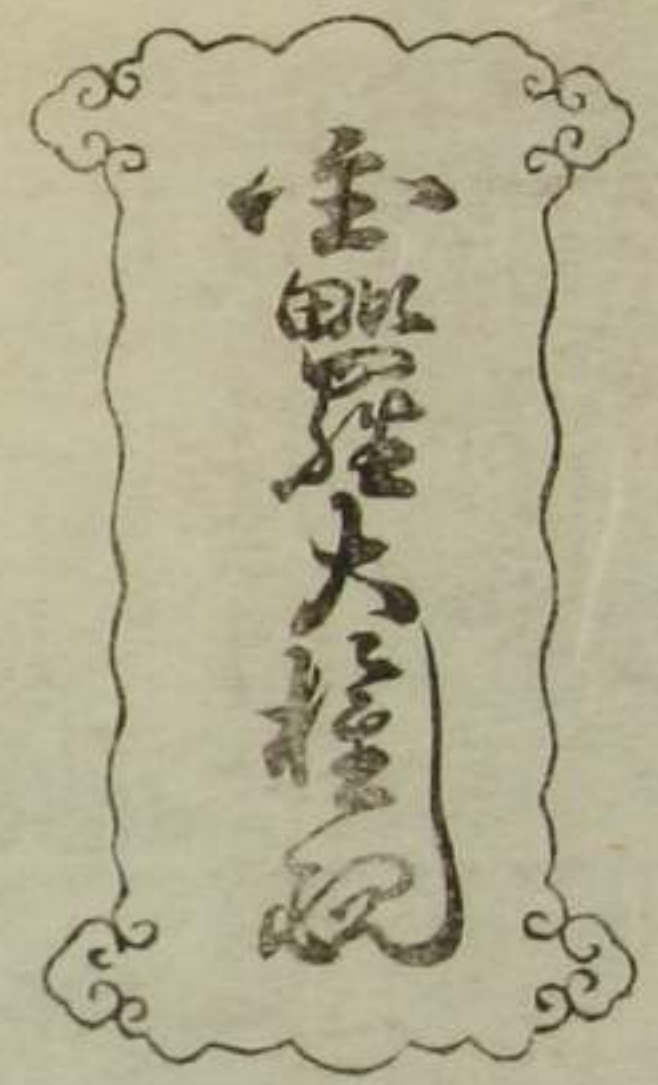 金毘羅大權現